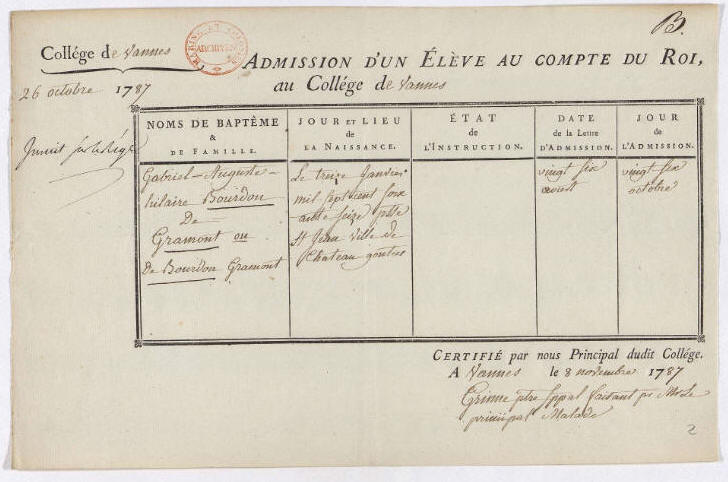 B.
Collége de Vannes
ARCHIVES
ADMISSION D'UN ÉLÈVE AU COMPTE DU ROI,
au Collége de Vannes
26 octobre 1787
Inscrit sur le Rég.
NOMS DE BAPTÊME
&
DE FAMILLE.
JOUR ET LIEU
de
LA NAISSANCE.
ÉTAT
de
L'INSTRUCTION.
DATE
de la Lettre
D'ADMISSION.
JOUR
de
L'ADMISSION.
Gabriel-Auguste-
hilaire Bourdon
De
Gramont ou
De Bourdon Gramont
Le treize Janvier
mil sept cent soix
ante seize psse
St Jean Ville de
Chateau gontier
vingt six
aoust
vingt-six
octobre
CERTIFIÉ par nous Principal dudit Collége.
A Vannes le 8 novembre 1787
ptre faisant pr Mr Le
principal Malade
2